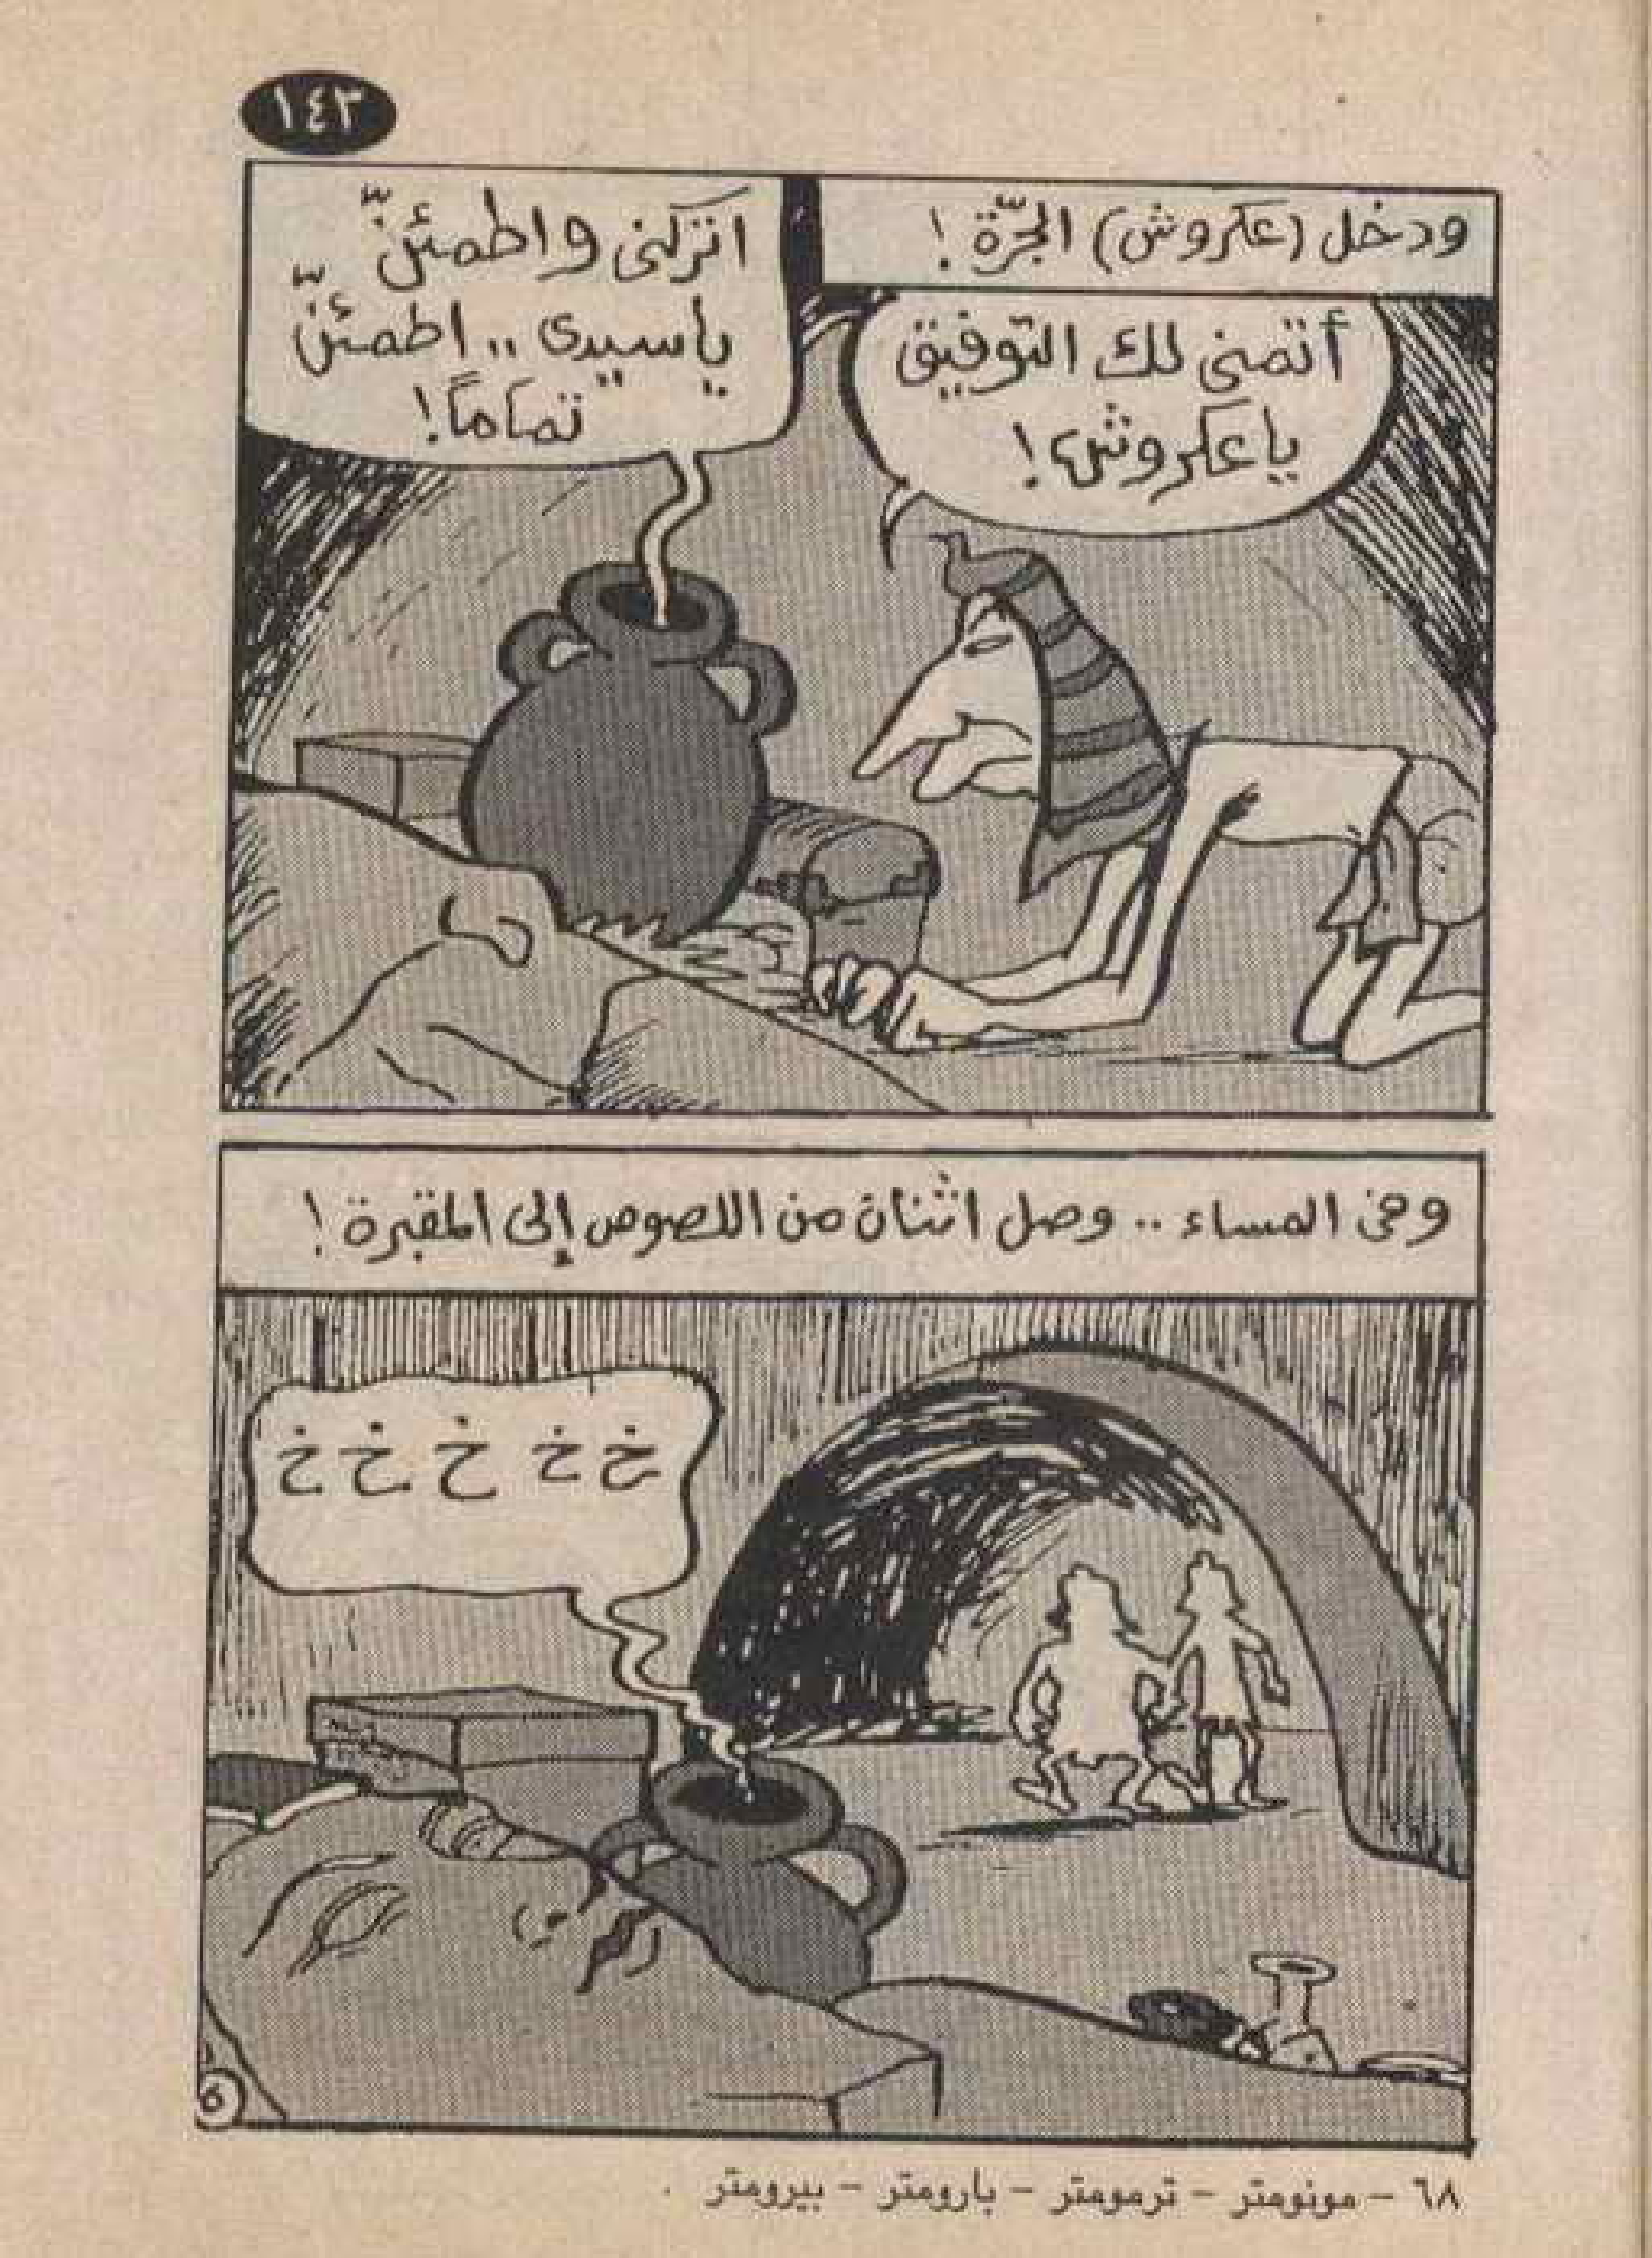 ١٤٣
ودخل (عكروش) الجرّة!
أتمنى لك التوفيق
ياعكروش!
اتركنى واطمئنّ
ياسيدى .. اطمئنّ
تمامًا!
وفى المساء .. وصل اثنان من اللصوص إلى المقبرة!
خ خ خ خ خ
٦٨ - مونومتر - ترمومتر - بارومتر - بيرومتر .